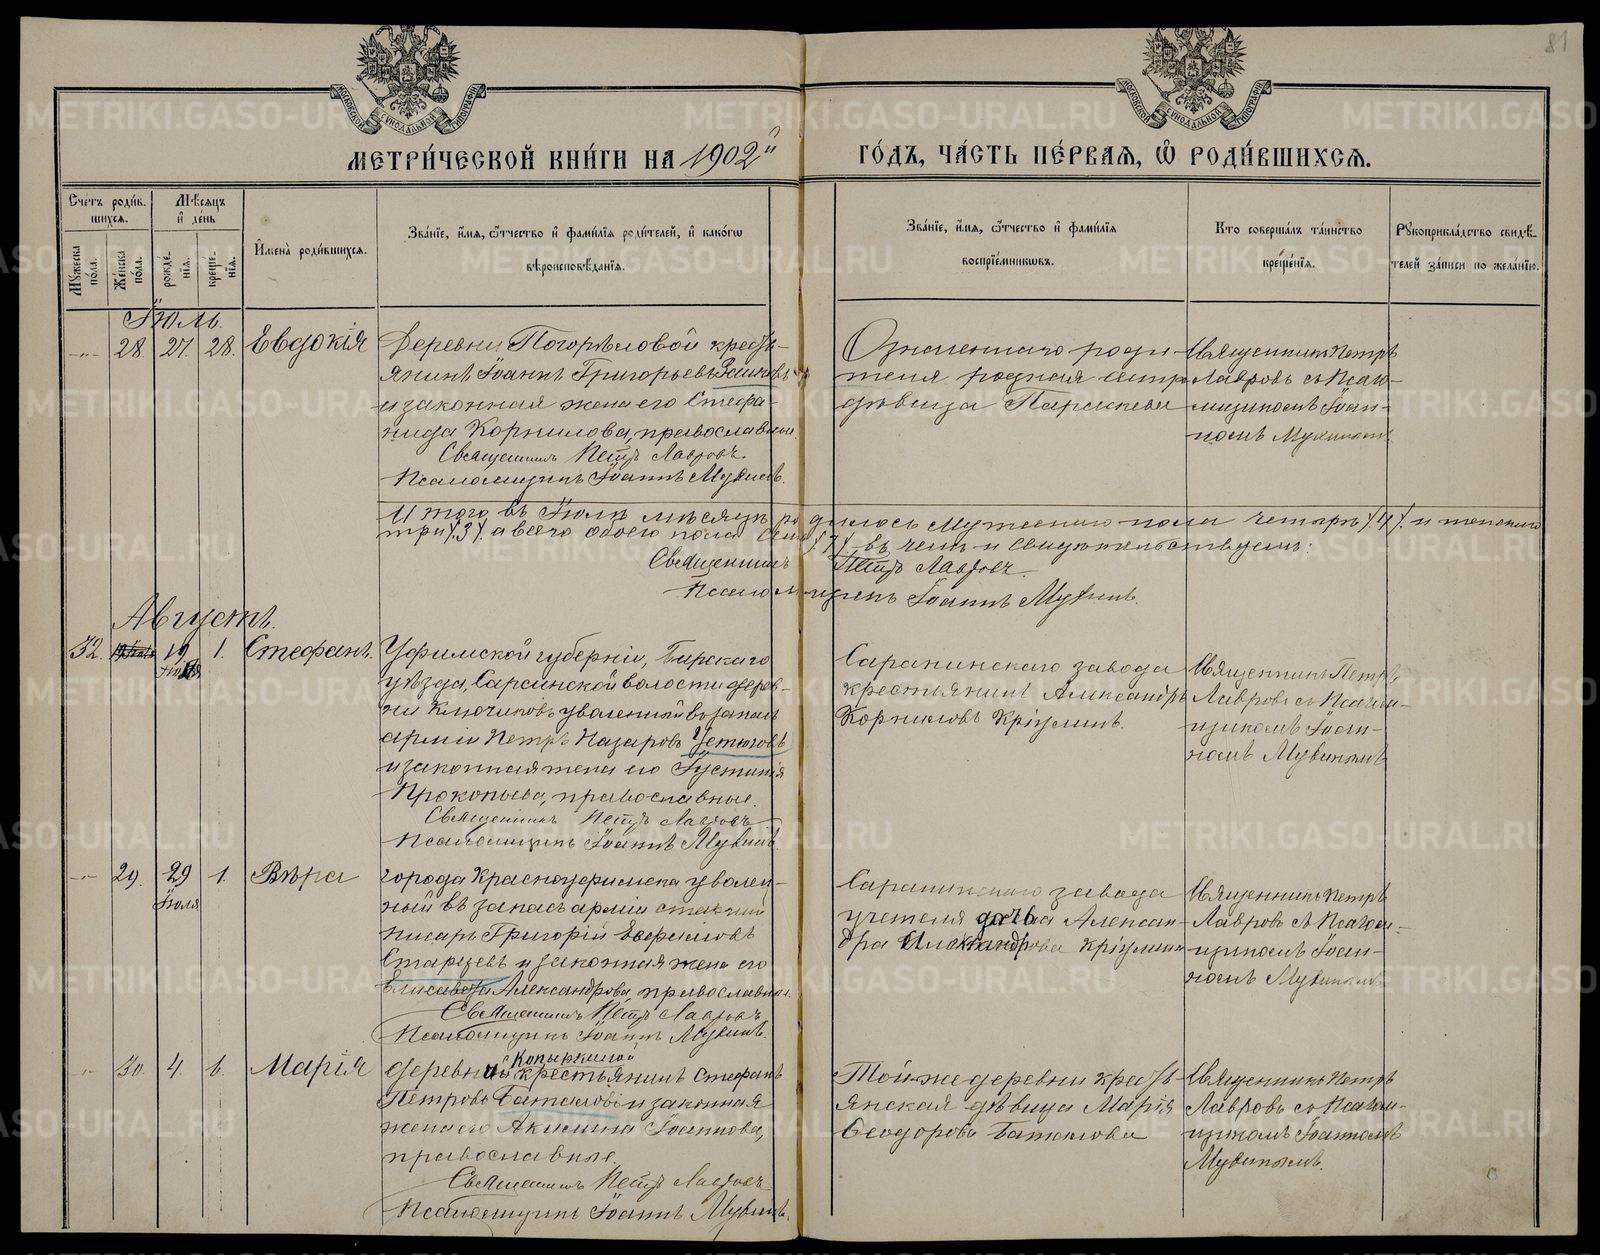 81
МОСКОВСКОЙ СѴНОДАЛЬНОЙ ТИПОГРАФІИ
МОСКОВСКОЙ СѴНОДАЛЬНОЙ ТИПОГРАФІИ
МЕТРИ́ЧЕСКОЙ КНИ́ГИ НА 1902й ГО́ДЪ, ЧА́СТЬ ПЕ́РВАЯ, Ѡ҆ РОДИ́ВШИХСЯ.
Счетъ роди́в-
шихся.
Мѣ́сяцъ
и҆ де́нь
Мꙋжеска
по́ла.
Же́нска
по́ла.
рожде-
нія.
креще-
нія.
И҆мена̀ роди́вшихся.
Зва́нїе, и҆́мя, ѻ҆́тчество и҆ фами́лїя роди́телей, и҆ како́гѡ
вѣроисповѣ́данїя.
Зва́нїе, и҆́мя, ѻ҆́тчество и҆ фами́лїя
воспрїе́мникѡвъ.
Кто соверша́лъ та́инство
креще́нїя.
Рꙋкоприкла́дство свидѣ́-
телей за́писи по жела́нїю.
Іюль.
-"- 28. 27. 28. Евдокія
Деревни Погорѣловой кресть-
янинъ Іоаннъ Григорьевъ
и законная жена его Стефа-
нида Корнилова, православные
Священникъ Петръ Лавровъ.
Псаломщикъ Іоаннъ Мухинъ.
Означеннаго роди-
теля родная сестра
дѣвица Параскева
Священникъ Петръ
Лавровъ съ Псало-
мщикомъ Іоан-
номъ Мухинымъ
Итого въ Іюлѣ мѣсяцѣ родилось мужескаго пола четыре /4/. и женскаго
три /3/. а всего обоего пола семь /7/, въ чемъ и свидѣтельствуемъ:
Священникъ Петръ Лавровъ.
Псаломщикъ Іоаннъ Мухинъ.
Августъ.
32. 19 Іюля 1. Стефанъ.
Уфимской губерніи, Бирскаго
уѣзда, Сарсинской волости дерев-
ни Ключиковъ уволенный въ запасъ
арміи Петръ Назаровъ Устюговъ
и законная жена его Іустинія
Прокопьева, православные.
Священникъ Петръ Лавровъ
Псаломщикъ Іоаннъ Мухинъ.
Саранинскаго завода
крестьянинъ Александръ
Корниловъ Кріулинъ.
Священникъ Петръ
Лавровъ съ Псалом-
щикомъ Іоан-
номъ Мухинымъ
-"- 29. 29 Іюля 1. Вѣра
города Красноуфимска уволен-
ный въ запасъ арміи старшій
писарь Григорій Евфимовъ
Старцевъ и законная жена его
Елисавета Александрова, православные.
Священникъ Петръ Лавровъ
Псаломщикъ Іоаннъ Мухинъ.
Саранинскаго завода
учителя дочь Алексан-
дра Александрова Кріулина
Священникъ Петръ
Лавровъ съ Псалом-
щикомъ Іоан-
номъ Мухинымъ
-"- 30. 4. 6. Марія
Копыркиной
деревни крестьянинъ Стефанъ
Петровъ Баталовъ и законная
жена его Акилина Іоаннова,
православные.
Священникъ Петръ Лавровъ
Псаломщикъ Іоаннъ Мухинъ.
Той же деревни кресть-
янская дѣвица Марія
Ѳеодорова Баталова
Священникъ Петръ
Лавровъ съ Псалом-
щикомъ Іоанномъ
Мухинымъ.
METRIKI.GASO-URAL.RU